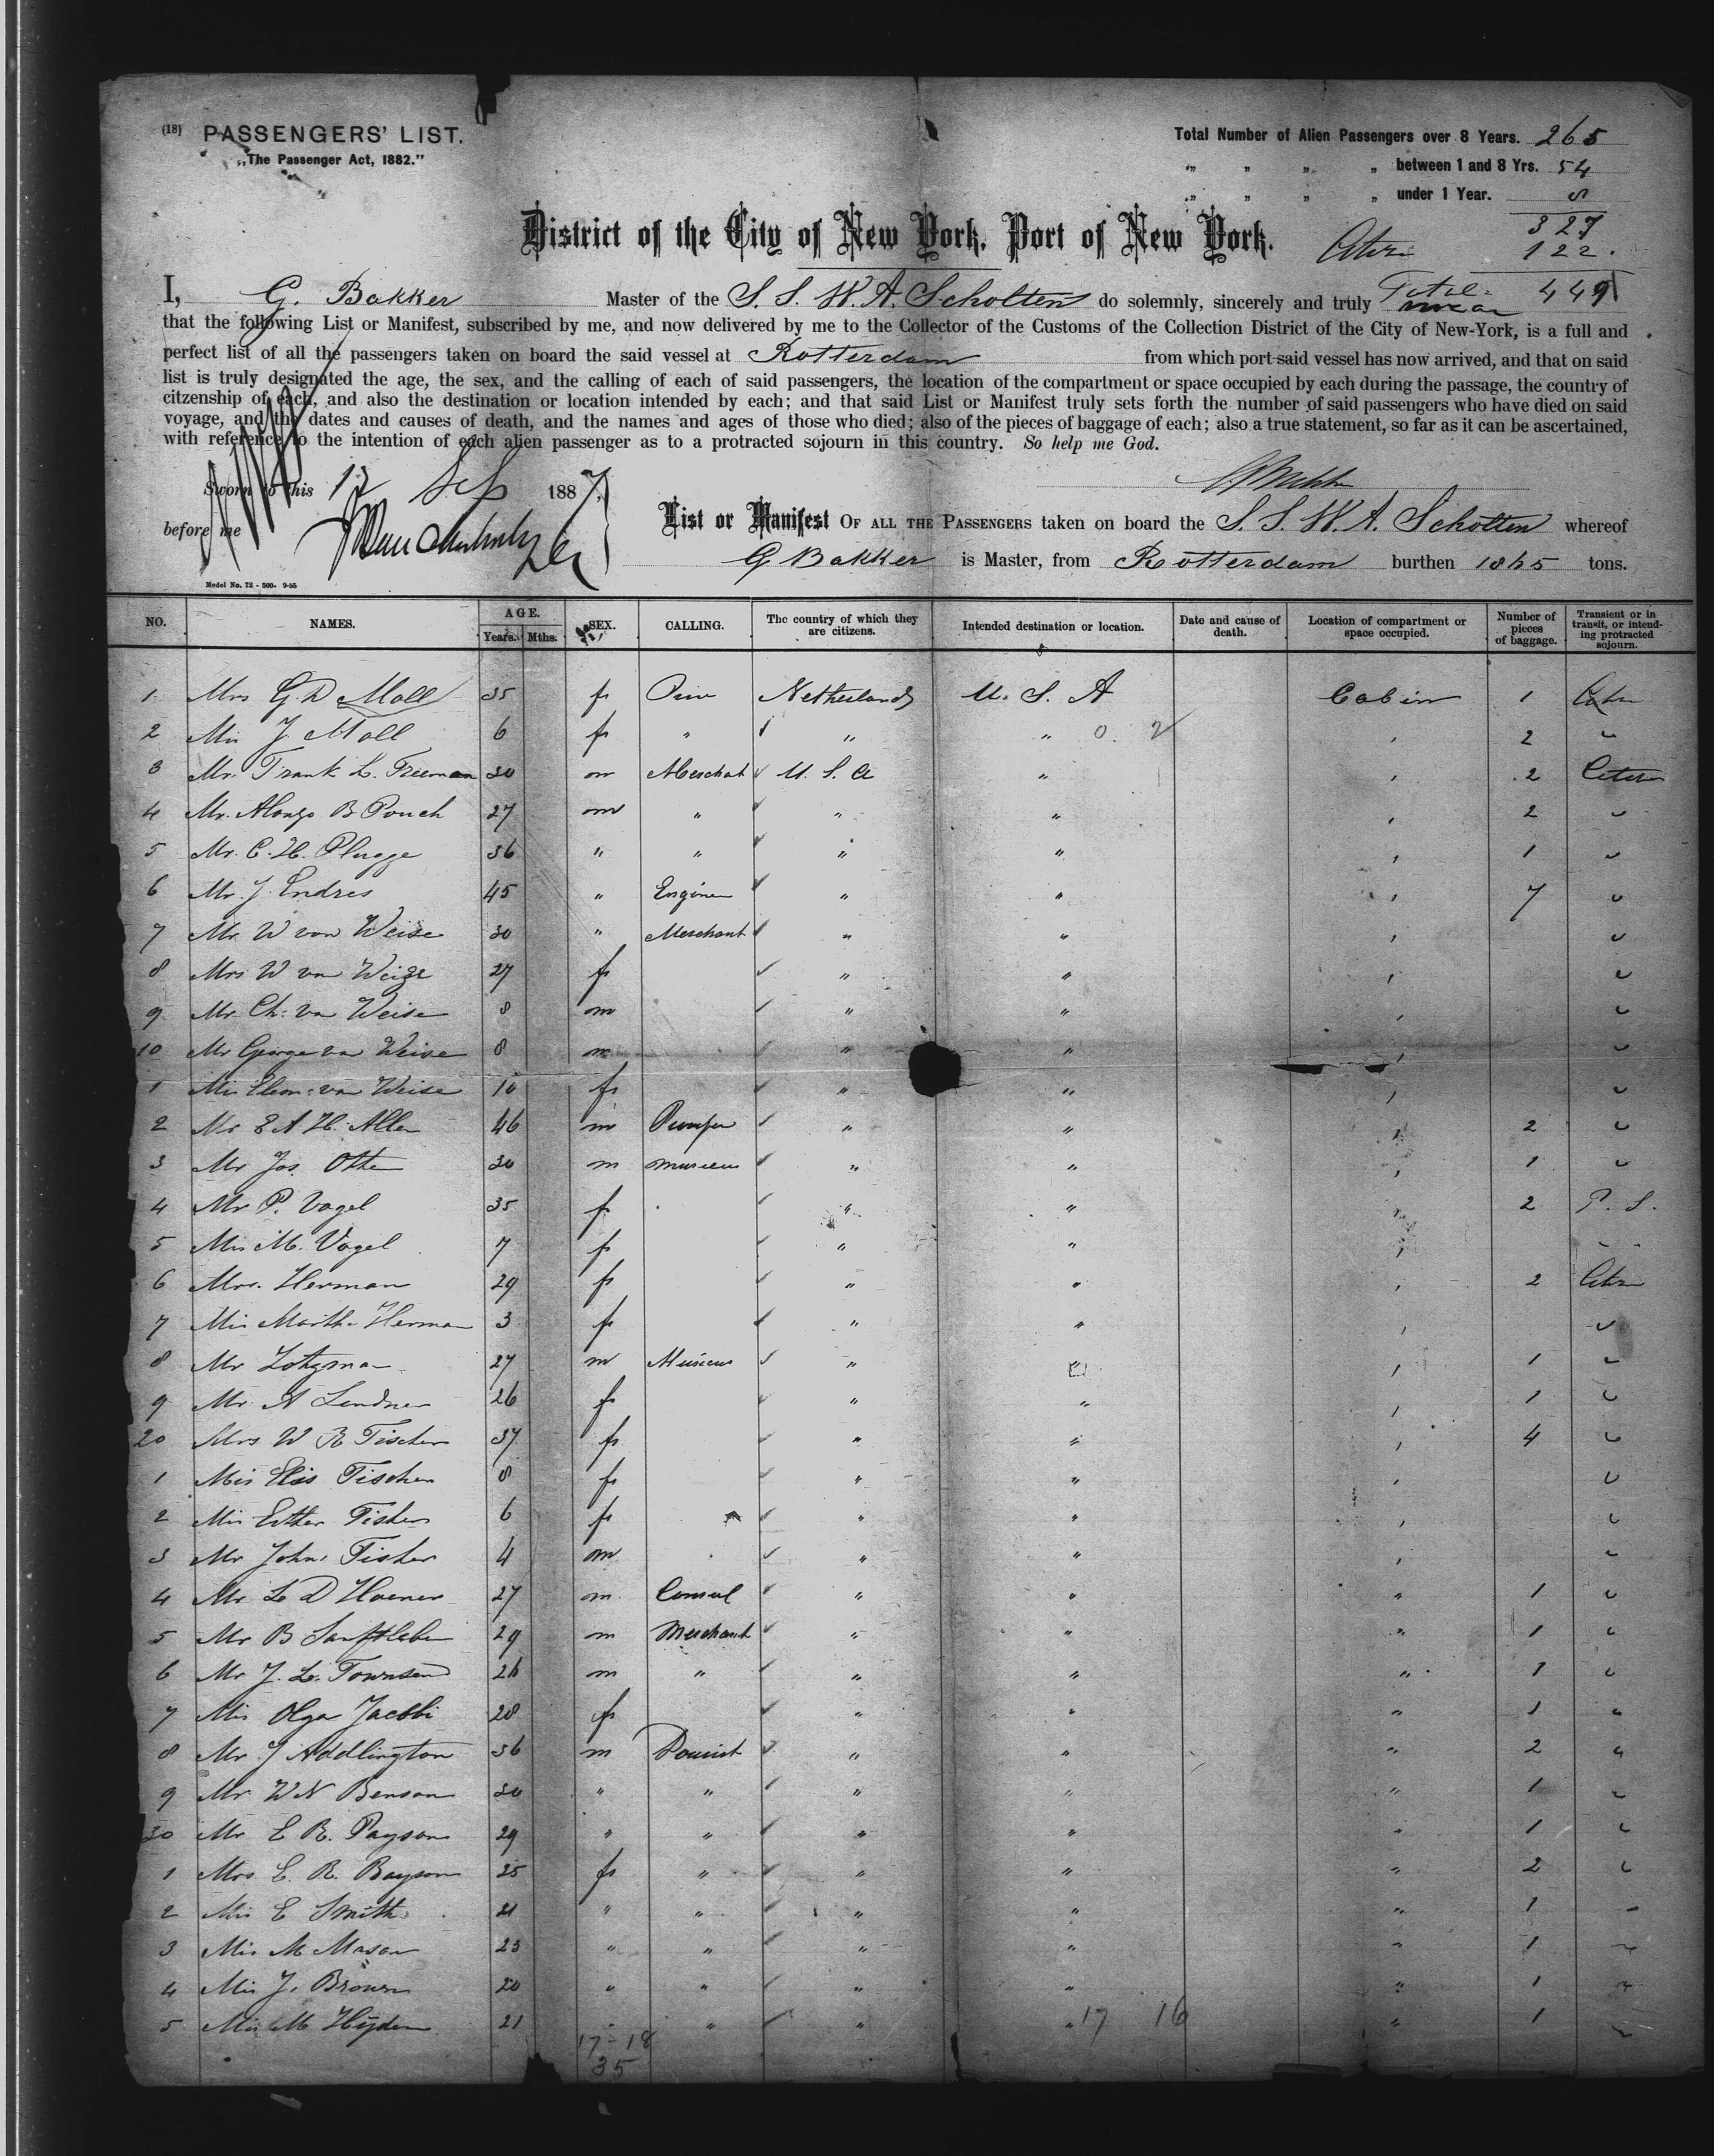 (18) PASSENGERS' LIST.
„The Passenger Act, 1882."
Total Number of Alien Passengers over 8 Years. 265
„ „ „ „ between 1 and 8 Yrs. 54
„ „ „ „ under 1 Year. 8
327
District of the City of New York, Port of New York.
122.
I, G. Bakker Master of the S. S. W. A. Scholten do solemnly, sincerely and truly Total 449
that the following List or Manifest, subscribed by me, and now delivered by me to the Collector of the Customs of the Collection District of the City of New-York, is a full and
perfect list of all the passengers taken on board the said vessel at Rotterdam from which port said vessel has now arrived, and that on said
list is truly designated the age, the sex, and the calling of each of said passengers, the location of the compartment or space occupied by each during the passage, the country of
citzenship of each, and also the destination or location intended by each; and that said List or Manifest truly sets forth the number of said passengers who have died on said
voyage, and the dates and causes of death, and the names and ages of those who died; also of the pieces of baggage of each; also a true statement, so far as it can be ascertained,
with reference to the intention of each alien passenger as to a protracted sojourn in this country. So help me God.
Sworn to this 12 Sep 1887,
before me
List or Manifest OF ALL THE PASSENGERS taken on board the S. S. W. A. Scholten whereof
G Bakker is Master, from Rotterdam burthen tons.
Model No. 72 - 500- 9-85
NO. NAMES. AGE. Years. Mths. SEX. CALLING. The country of which they are citizens. Intended destination or location. Date and cause of death. Location of compartment or space occupied. Number of pieces of baggage. Transient or in transit, or intending protracted sojourn.
1 Mrs G. D Moll 35 f Netherlands U. S. A Cabin 1
2 J Moll 6 f „ „ „ 0 2 2 „
3 Mr. Frank L. Freeman 30 m U. S. A „ 2
4 Mr. Alonzo B Pouch 27 m „ „ „ 2 „
5 Mr. C. H. Plugge 36 „ „ „ „ 1 „
6 Mr. J. Endres 45 „ „ „ 7 „
7 Mr. W von Weise 30 „ Merchant „ „ „
8 Mrs W von Weise 27 f „ „ „
9 Mr Ch: von Weise 8 m „ „ „
10 Mr George von Weise 8 m „ „ „
1 von Weise 10 f „ „ „
2 Mr E A H. Allen 46 m „ „ 2 „
3 Mr Jos. Otte 30 m „ „ 1 „
4 P. Vogel 35 f „ „ 2 P. S.
5 M. Vogel 7 f „ „ „
6 Mrs. Herman 29 f „ „ 2
7 Herman 3 f „ „ „
8 Mr 27 m „ „ 1 „
9 A 26 f „ „ 1 „
20 Mrs W R Fischer 37 f „ „ 4 „
1 Fischer 8 f „ „ „
2 Esther Fisher 6 f „ „ „
3 Mr John Fisher 4 m „ „ „
4 Mr L D 27 m Consul „ „ „ 1 „
5 Mr B 29 m Merchant „ „ „ 1 „
6 Mr J. L. Townsend 26 m „ „ „ „ 1 „
7 Olga Jacobi 28 f „ „ „ 1 „
8 Mr J Addlington 36 m „ „ „ 2 „
9 Mr W N Benson 30 „ „ „ „ „ 1 „
30 Mr E R. Payson 29 „ „ „ „ „ 1 „
1 Mrs E. R. Bayson 25 f „ „ „ „ 2 „
2 E Smith 21 „ „ „ „ „ 1 „
3 M Mason 23 „ „ „ „ „ 1 „
4 J. Brown 20 „ „ „ „ „ 1 „
5 M 21 „ „ „ „ 17 16 „ 1 „
17-18
35